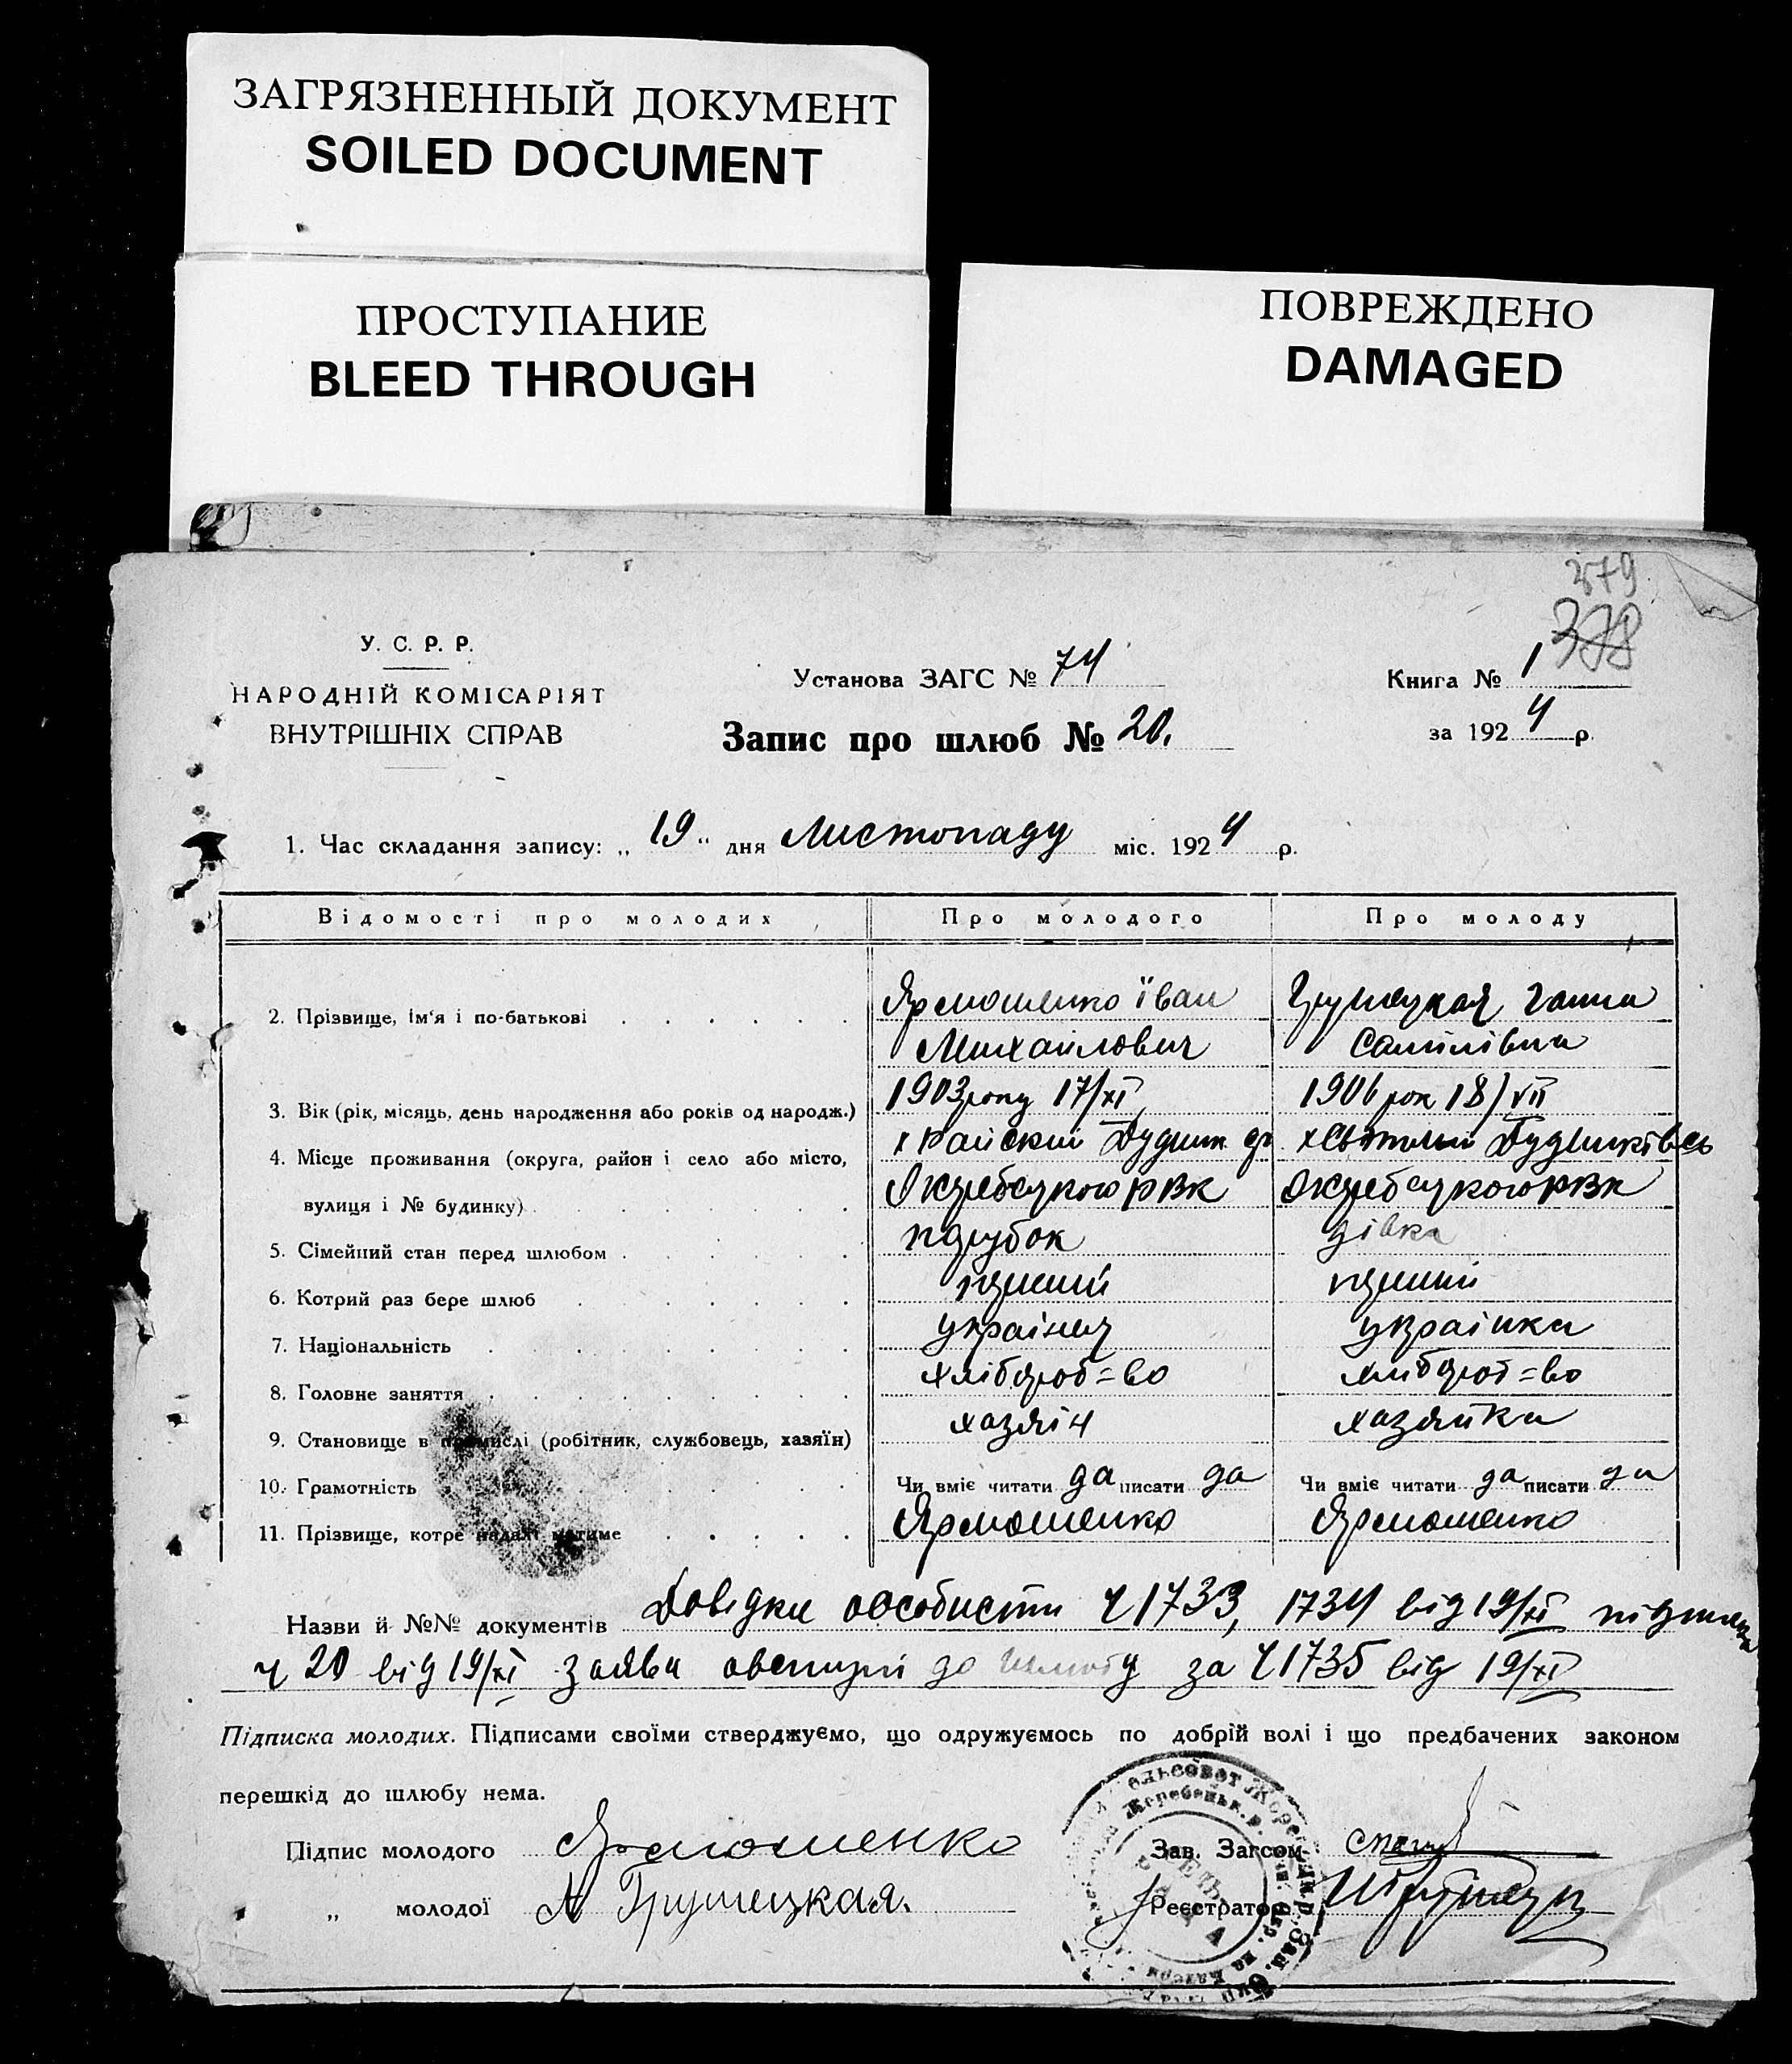 ЗАГРЯЗНЕННЫЙ ДОКУМЕНТ
SOILED DOCUMENT
ПРОСТУПАНИЕ
BLEED THROUGH
ПОВРЕЖДЕНО
DAMAGED
379
378
У. С. Р. Р.
НАРОДНІЙ КОМІСАРІЯТ
ВНУТРІШНІХ СПРАВ
Установа ЗАГС № 74
Запис про шлюб № 20.
Книга № 1
за 1924 р.
1. Час складання запису: „19“ дня Листопаду міс. 1924 р.
Відомості про молодих Про молодого Про молоду
2. Прізвище, ім'я і по-батькові Ярмошенко Їван Грушецкая Ганна
Михайлович Самілівна
3. Вік (рік, місяць, день народження або років од народж.) 1903 року 17/XI 1906 рок 18/VII
4. Місце проживання (округа, район і село або місто, х Райский х
вулиця і № будинку) РВК РВК
5. Сімейний стан перед шлюбом парубок дівка
6. Котрий раз бере шлюб перший перший
7. Національність українец українка
8. Головне заняття хлібороб=во хлібороб=во
9. Становище в промислі (робітник, службовець, хазяїн) хазяін хазяйка
10. Грамотність Чи вміє читати да писати да Чи вміє читати да писати да
11. Прізвище, котре надалі матиме Ярмошенко Ярмошенко
Назви й №№ документів Довідки особисти Ч 1733, 1734 від 19/XI підписка
ч 20 від 19/XI заява до шлюбу за Ч 1735 від 19/XI
Підписка молодих. Підписами своїми стверджуємо, що одружуємось по добрій волі і що предбачених законом
перешкід до шлюбу нема.
Підпис молодого Ярмошенко
Зав. Загсом
„ молодої А Грушецкая.
Реєстратор